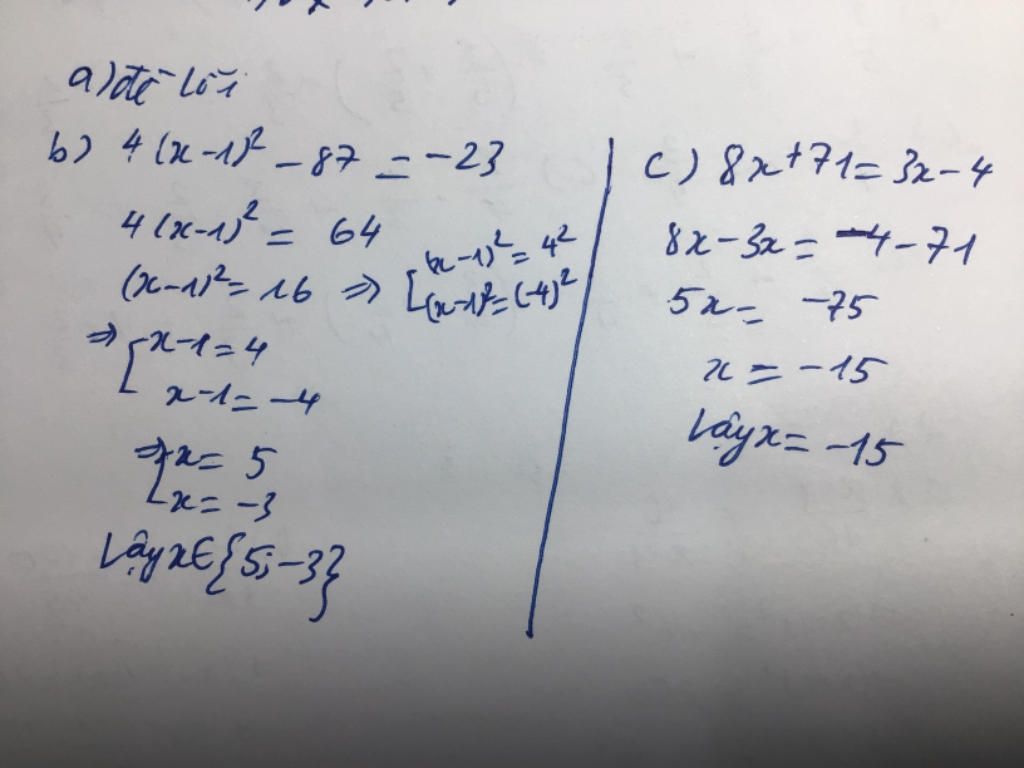 a) đề lỗi
b) 4(x-1)² - 87 = -23
4(x-1)² = 64
(x-1)² = 16 ⇒ [ (x-1)² = 4²
(x-1)² = (-4)²
⇒ [ x-1 = 4
x-1 = -4
⇒ [ x = 5
x = -3
Vậy x ∈ {5; -3}
c) 8x + 71 = 3x - 4
8x - 3x = -4 - 71
5x = -75
x = -15
Vậy x = -15